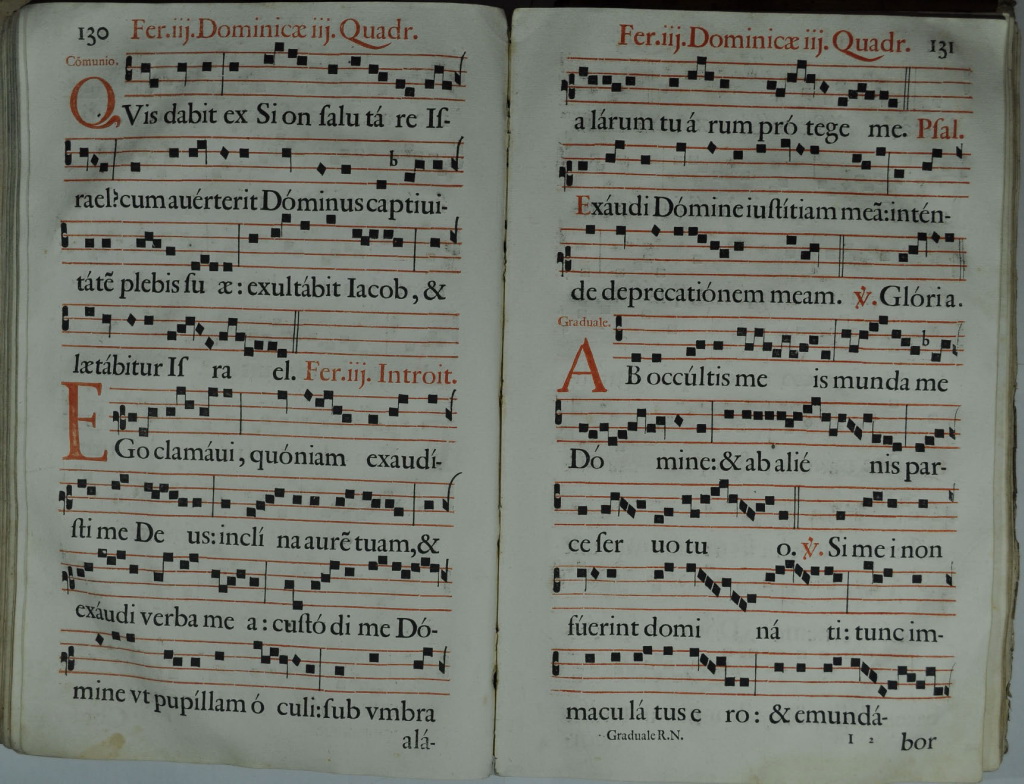 130 Fer.iij.Dominicæ iij. Quadr.
Cómunio.
QVis dabit ex Sion ſalu tá re Iſ-
rael? cum auérterit Dóminus captiui-
tátẽ plebis ſu æ: exultábit Iacob, &
lætábitur Iſ ra el. Fer.iij. Introit.
EGo clamáui, quóniam exaudí-
ſti me De us: inclí na aurẽ tuam, &
exáudi verba me a: cuſtó di me Dó-
mine vt pupíllam ó culi: ſub vmbra
alá-
Fer.iij.Dominicæ iij. Quadr. 131
a lárum tu á rum pró tege me. Pſal.
Exáudi Dómine iuſtítiam meã: intén-
de deprecatiónem meam. ℣. Glória.
Graduale.
AB occúltis me is munda me
Dó mine: & ab alié nis par-
ce ſer uo tu o. ℣. Si me i non
fúerint domi ná ti: tunc im-
macu lá tus e ro: & emundá-
Graduale R.N. I 2 bor